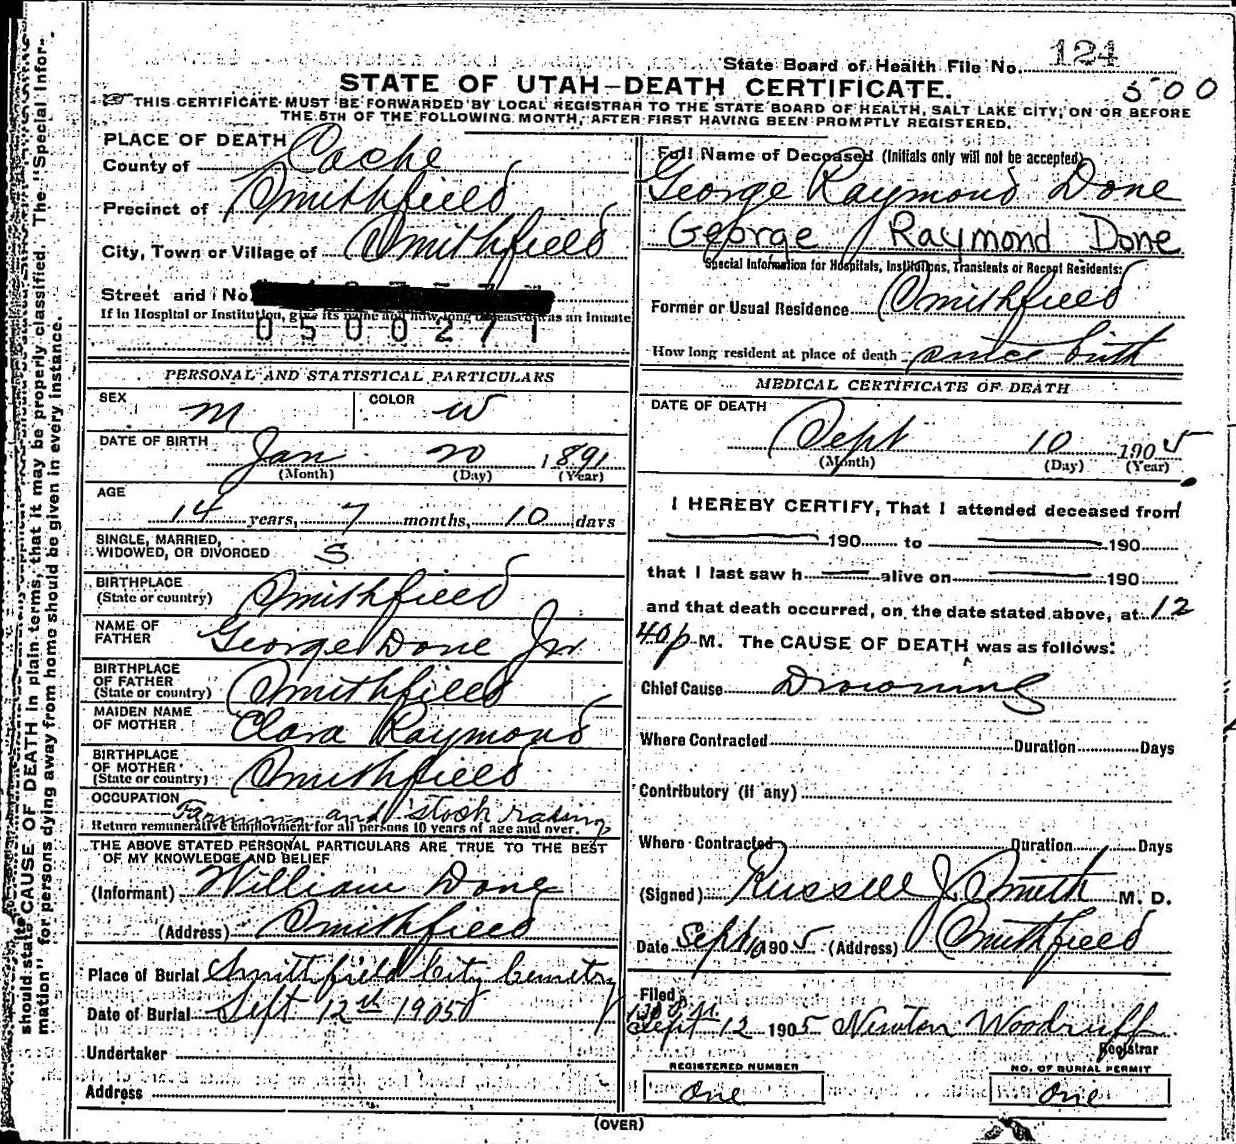 State Board of Health File No. 124
STATE OF UTAH—DEATH CERTIFICATE.
500
THIS CERTIFICATE MUST BE FORWARDED BY LOCAL REGISTRAR TO THE STATE BOARD OF HEALTH, SALT LAKE CITY, ON OR BEFORE
THE 5TH OF THE FOLLOWING MONTH, AFTER FIRST HAVING BEEN PROMPTLY REGISTERED.
should state CAUSE OF DEATH in plain terms, that it may be properly classified. The "Special Infor-
mation" for persons dying away from home should be given in every instance.
PLACE OF DEATH
County of Cache
Precinct of Smithfield
City, Town or Village of Smithfield
Street and No.
If in Hospital or Institution, give its name and how long deceased was an inmate
0500271
PERSONAL AND STATISTICAL PARTICULARS
SEX M COLOR W
DATE OF BIRTH Jan 20 1891
(Month) (Day) (Year)
AGE
14 years, 7 months, 10 days
SINGLE, MARRIED,
WIDOWED, OR DIVORCED S
BIRTHPLACE
(State or country) Smithfield
NAME OF
FATHER George Done Jr
BIRTHPLACE
OF FATHER
(State or country) Smithfield
MAIDEN NAME
OF MOTHER Clara Raymond
BIRTHPLACE
OF MOTHER
(State or country) Smithfield
OCCUPATION Farming and stock raising
Return remunerative employment for all persons 10 years of age and over.
THE ABOVE STATED PERSONAL PARTICULARS ARE TRUE TO THE BEST
OF MY KNOWLEDGE AND BELIEF
(Informant) William Done
(Address) Smithfield
Place of Burial Smithfield City Cemetry
Date of Burial Sept 12th 1905
Undertaker
Address
Full Name of Deceased (Initials only will not be accepted)
George Raymond Done
George Raymond Done
Special Information for Hospitals, Institutions, Transients or Recent Residents:
Former or Usual Residence Smithfield
How long resident at place of death since birth
MEDICAL CERTIFICATE OF DEATH
DATE OF DEATH
Sept 10 1905
(Month) (Day) (Year)
I HEREBY CERTIFY, That I attended deceased from
190 to 190
that I last saw h alive on 190
and that death occurred, on the date stated above, at 12
40 p M. The CAUSE OF DEATH was as follows:
Chief Cause Drowning
Where Contracted Duration Days
Contributory (if any)
Where Contracted Duration Days
(Signed) Russell J. Smith M. D.
Date Sept 1905 (Address) Smithfield
Filed
Sept 12 1905 Newton Woodruff
Registrar
REGISTERED NUMBER
One
NO. OF BURIAL PERMIT
One
(OVER)